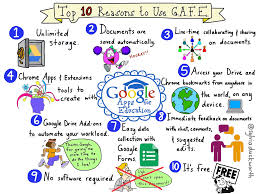 Top 10 Reasons to Use G.A.F.E.
1 Unlimited
storage.
2 Documents are
saved automatically.
Hooray!
3 Live-time collaborating & sharing
on documents
4 Chrome Apps & Extensions
tools to
create with
Google
Apps for
Education
5 Access your Drive and
Chrome bookmarks from anywhere in
the world, on any
device.
6 Google Drive Add-ons
to automate your workload.
7 Easy data
collection with
Google
Forms.
8 Immediate feedback on documents
with chat, comments,
& suggested
edits.
9 No software required.
10 It's free.
FREE